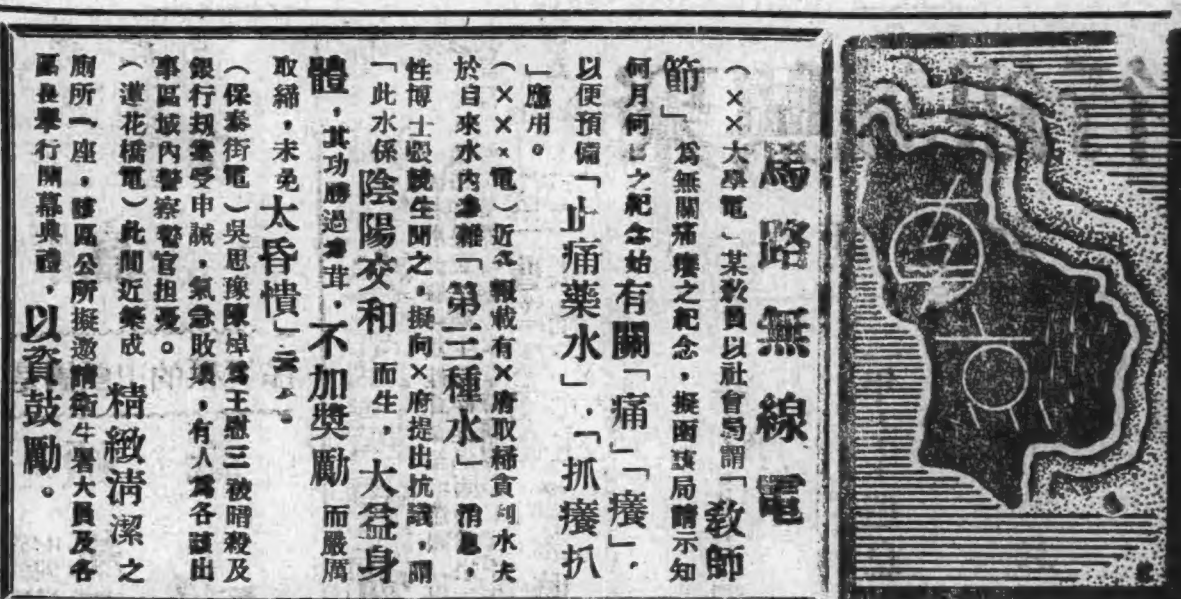 馬路無線電
(××大學電)某敎員以社會局謂「敎師
節」爲無關痛癢之紀念，擬函該局請示知
何月何日之紀念始有關「痛」「癢」，
以便預備「止痛藥水」，「抓癢扒
」應用。
(×××電)近各報載有×府取締貪利水夫
於自來水內摻雜「第三種水」消息，
性博士張競生聞之，擬向×府提出抗議，謂
「此水係陰陽交和而生，大益身
體，其功勝過茸，不加奬勵而嚴厲
取締，未免太昏憒」云云。
(保泰街電)吳思豫陳焯爲王慰三被暗殺及
銀行刼案受申誡，氣急敗壞，有人爲各該出
事區域內警察警官担憂。
(蓮花橋電)此間近築成精緻淸潔之
廁所一座，該區公所擬邀請衞生署大員及各
區長舉行開幕典禮，以資鼓勵。